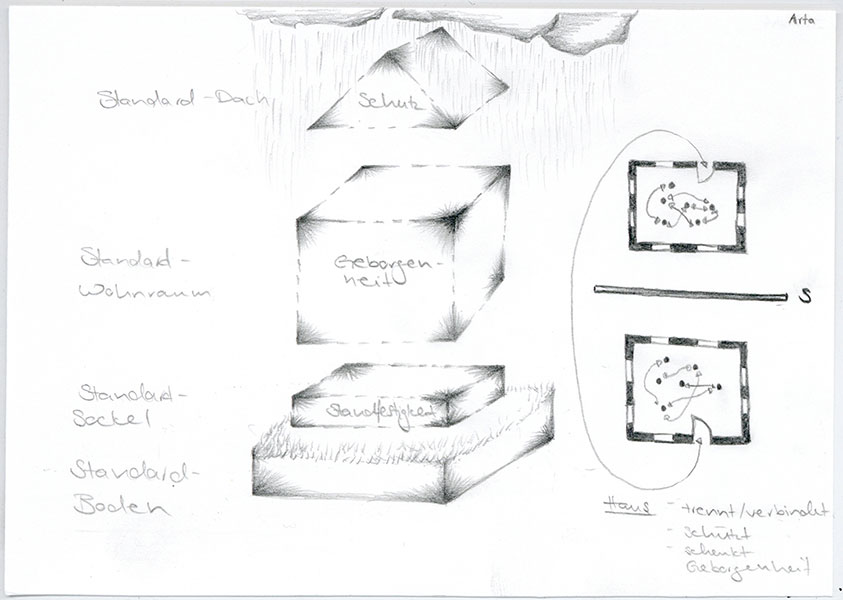 Arta
Standard-Dach
Schutz
Standard-
Wohnraum
Geborgen-
heit
Standard-
Sockel
Standfestigkeit
Standard-
Boden
S
Haus - trennt/verbindet
- schützt
- schenkt
Geborgenheit